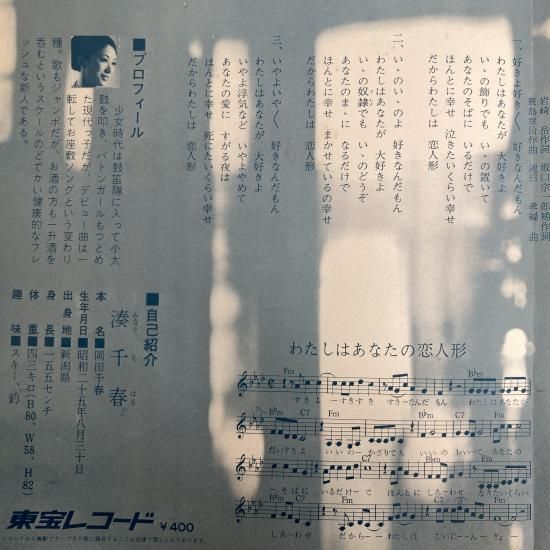 岩崎 岳作詞 坂口宗一郎補作詞
鹿島奨治作曲 池田 孝編曲
一、好きよ好き〱 好きなんだもん
わたしはあなたが 大好きよ
いゝの飾りでも いゝの置いて
あなたのそばに いるだけで
ほんとに幸せ 泣きたいくらい幸せ
だからわたしは 恋人形
二、いゝのいゝのよ 好きなんだもん
わたしはあなたが 大好きよ
いゝの奴隷でも いゝのどうぞ
あなたのまゝに なるだけで
ほんとに幸せ まかせているの幸せ
だからわたしは 恋人形
三、いやよいや〱 好きなんだもん
わたしはあなたが 大好きよ
いやよ浮気など いやよやめて
あなたの愛に すがる夜は
ほんとに幸せ 死にたいくらい幸せ
だからわたしは 恋人形
■プロフィール
少女時代は鼓笛隊に入って小太
鼓を叩き、バトンガールもつとめ
た現代っ子だが、デビュー曲は一
転してお座敷ソングという変わり
種。歌もジャンボだが、お酒の方も一升酒を
呑むというスケールのでかい健康的なフレ
ッシュな新人である。
■自己紹介
湊 千春
みなと ち はる
本名■岡田千春
生年月日■昭和二十五年八月二十日
出身地■新潟県
身長■一五五センチ
体重■四三キロ(B80、W58、H82)
趣味■スキー、釣
わたしはあなたの恋人形
Fm B♭m
すきよ ーすきすき すきーなんだ もん わたしはあなたが
B♭m C7 Fm C7 Fm
だいすきよ いいのー かざりでも いいの おいーて あなたの
B♭m Fm
ーそばに いるだけーで ほんとに しあーわせ なきたいくらい
C7 Fm C7 Fm
しあーわせ だからー ーわたしは こいにーんーぎょー
東宝レコード ¥400
レコードから無断でテープその他に録音することは法律で禁じられております。